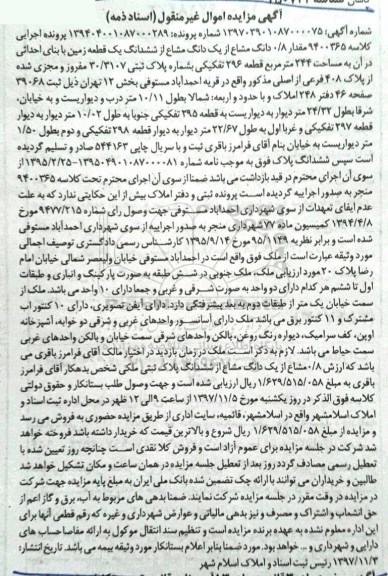 آگهی مزایده اموال غیرمنقول (اسناد ذمه)
شماره آگهی: ۱۳۹۷۰۳۹۰۱۰۸۷۰۰۰۰۷۵ شماره پرونده: ۱۳۹۴۰۴۰۰۱۰۸۷۰۰۰۲۸۹ شماره پرونده اجرایی
کلاسه ۹۴۰۰۳۶۵ مقدار ۰/۸ دانگ مشاع از یک دانگ مشاع از ششدانگ یک قطعه زمین با بنای احداثی
در آن به مساحت ۲۴۴ مترمربع قطعه ۲۹۶ تفکیکی بشماره پلاک ثبتی ۳۰/۳۱۰۷ مفروز و مجزی شده
از پلاک ۴۰۸ فرعی از اصلی مذکور واقع در قریه احمدآباد مستوفی بخش ۱۲ تهران ذیل ثبت ۳۹۰۶۸
صفحه ۴۶ دفتر ۲۴۸ املاک و با حدود و اربعه: شمالا بطول ۱۰/۱۱ متر درب و دیواریست و به خیابان،
شرقا بطول ۲۴/۳۲ متر دیوار به دیواریست به قطعه ۲۹۵ تفکیکی جنوبا به طول ۱۰/۰۲ متر دیوار به دیوار
قطعه ۲۹۷ تفکیکی و غربا اول به طول ۲۲/۶۷ متر دیوار به دیوار قطعه ۲۹۸ تفکیکی و دوم بطول ۱/۵۰
متر دیواریست به خیابان بنام آقای فرامرز باقری ثبت و با سریال چاپی ۵۴۴۱۶۳ صادر و تسلیم گردیده
است سپس ششدانگ پلاک فوق به موجب نامه شماره ۱۳۹۵۰۴۹۰۱۰۸۷۰۰۰۰۸۱-۱۳۹۵/۲/۲۵ از
سوی آن اجرای محترم در قید بازداشت می باشد ضمنا از سوی آن اجرای محترم تحت کلاسه ۹۴۰۰۳۶۵
منجر به صدور اجراییه گردیده است پرونده ثبتی و دفتر املاک بیش از این حکایتی ندارد که به علت
عدم ایفای تعهدات از سوی شهرداری احمدآباد مستوفی جهت وصول رای شماره ۹۴۷۷/۲۱۵ مورخ
۱۳۹۴/۴/۸ کمیسیون ماده ۷۷ شهرداری منجر به صدور اجراییه از سوی شهرداری احمدآباد مستوفی
شده است و برابر نظریه ۹۵/۱۱۴۹ مورخ ۱۳۹۵/۹/۱۴ کارشناس رسمی دادگستری توصیف اجمالی
مورد وثیقه عبارت است از ملک فوق واقع است در احمدآباد مستوفی خیابان ولیعصر شمالی خیابان امام
رضا پلاک ۲۰ مورد ارزیابی ملک، ملک جنوبی در شش طبقه به صورت پارکینگ و انباری و طبقات
اول تا ششم هر کدام دارای دو واحد به صورت شرقی و غربی و جمعا دارای ۱۰ واحد می باشد. ملک از
سمت خیابان یک متر از طبقات دوم به بعد پیشرفتگی دارد. دارای آیفن تصویری، دارای ۱۰ کنتور اب
مشترک و ۱۱ کنتور برق می باشد ملک دارای آسانسور واحدهای غربی و شرقی دو خوابه، آشپزخانه
اوپن، کف سرامیک، دیواره رنگ روغن، بالکن واحدهای شرقی سمت خیابان و بالکن واحدهای غربی
سمت حیاط می باشد. لازم به ذکر است ملک در زمان بازدید در اختیار مالک آقای فرامرز باقری می
باشد که ارزش ۰/۸ مشاع از یک دانگ مشاع از ششدانگ پلاک ثبتی ملکی شخص بدهکار آقای فرامرز
باقری به مبلغ ۱/۶۲۹/۵۱۵/۰۵۸ ریال ارزیابی شده است و جهت وصول طلب بستانکار و حقوق دولتی
کلاسه فوق الذکر در روز یکشنبه مورخ ۱۳۹۷/۱۱/۵ از ساعت ۹ الی ۱۲ ظهر در محل اداره ثبت اسناد و
املاک اسلامشهر واقع در اسلامشهر، قائمیه، سایت اداری از طریق مزایده حضوری به فروش می رسد
و مزایده از مبلغ ۱/۶۲۹/۵۱۵/۰۵۸ ریال شروع و بالاترین قیمت که خریدار داشته باشد فروخته خواهد
شد شرکت در جلسه مزایده برای عموم آزاد است و فروش کلا نقدی است چنانچه روز تعیین شده با
تعطیل رسمی مصادف گردد روز بعد از تعطیل جلسه مزایده در همان ساعت و مکان تشکیل خواهد شد
طالبین و خریداران می توانند با ارائه چک تضمین شده بانک ملی ایران به مبلغ پایه مزایده جهت شرکت
در مزایده در وقت مقرر در جلسه مزایده شرکت نمایند. ضمنا بدهی های مربوط به آب، برق و گاز اعم از
حق انشعاب و اشتراک و مصرف و نیز بدهی مالیاتی و عوارض شهرداری و غیره که رقم قطعی آنها برای
این اداره معلوم نشده به عهده برنده مزایده است و تنظیم سند انتقال موکول به ارائه مفاصا حساب های
دارایی و شهرداری و ... خواهد بود. مورد ضمنا بنابر اعلام بستانکار مورد وثیقه بیمه می باشد. تاریخ انتشار:
۱۳۹۷/۱۱/۳ رئیس ثبت اسناد و املاک اسلام شهر